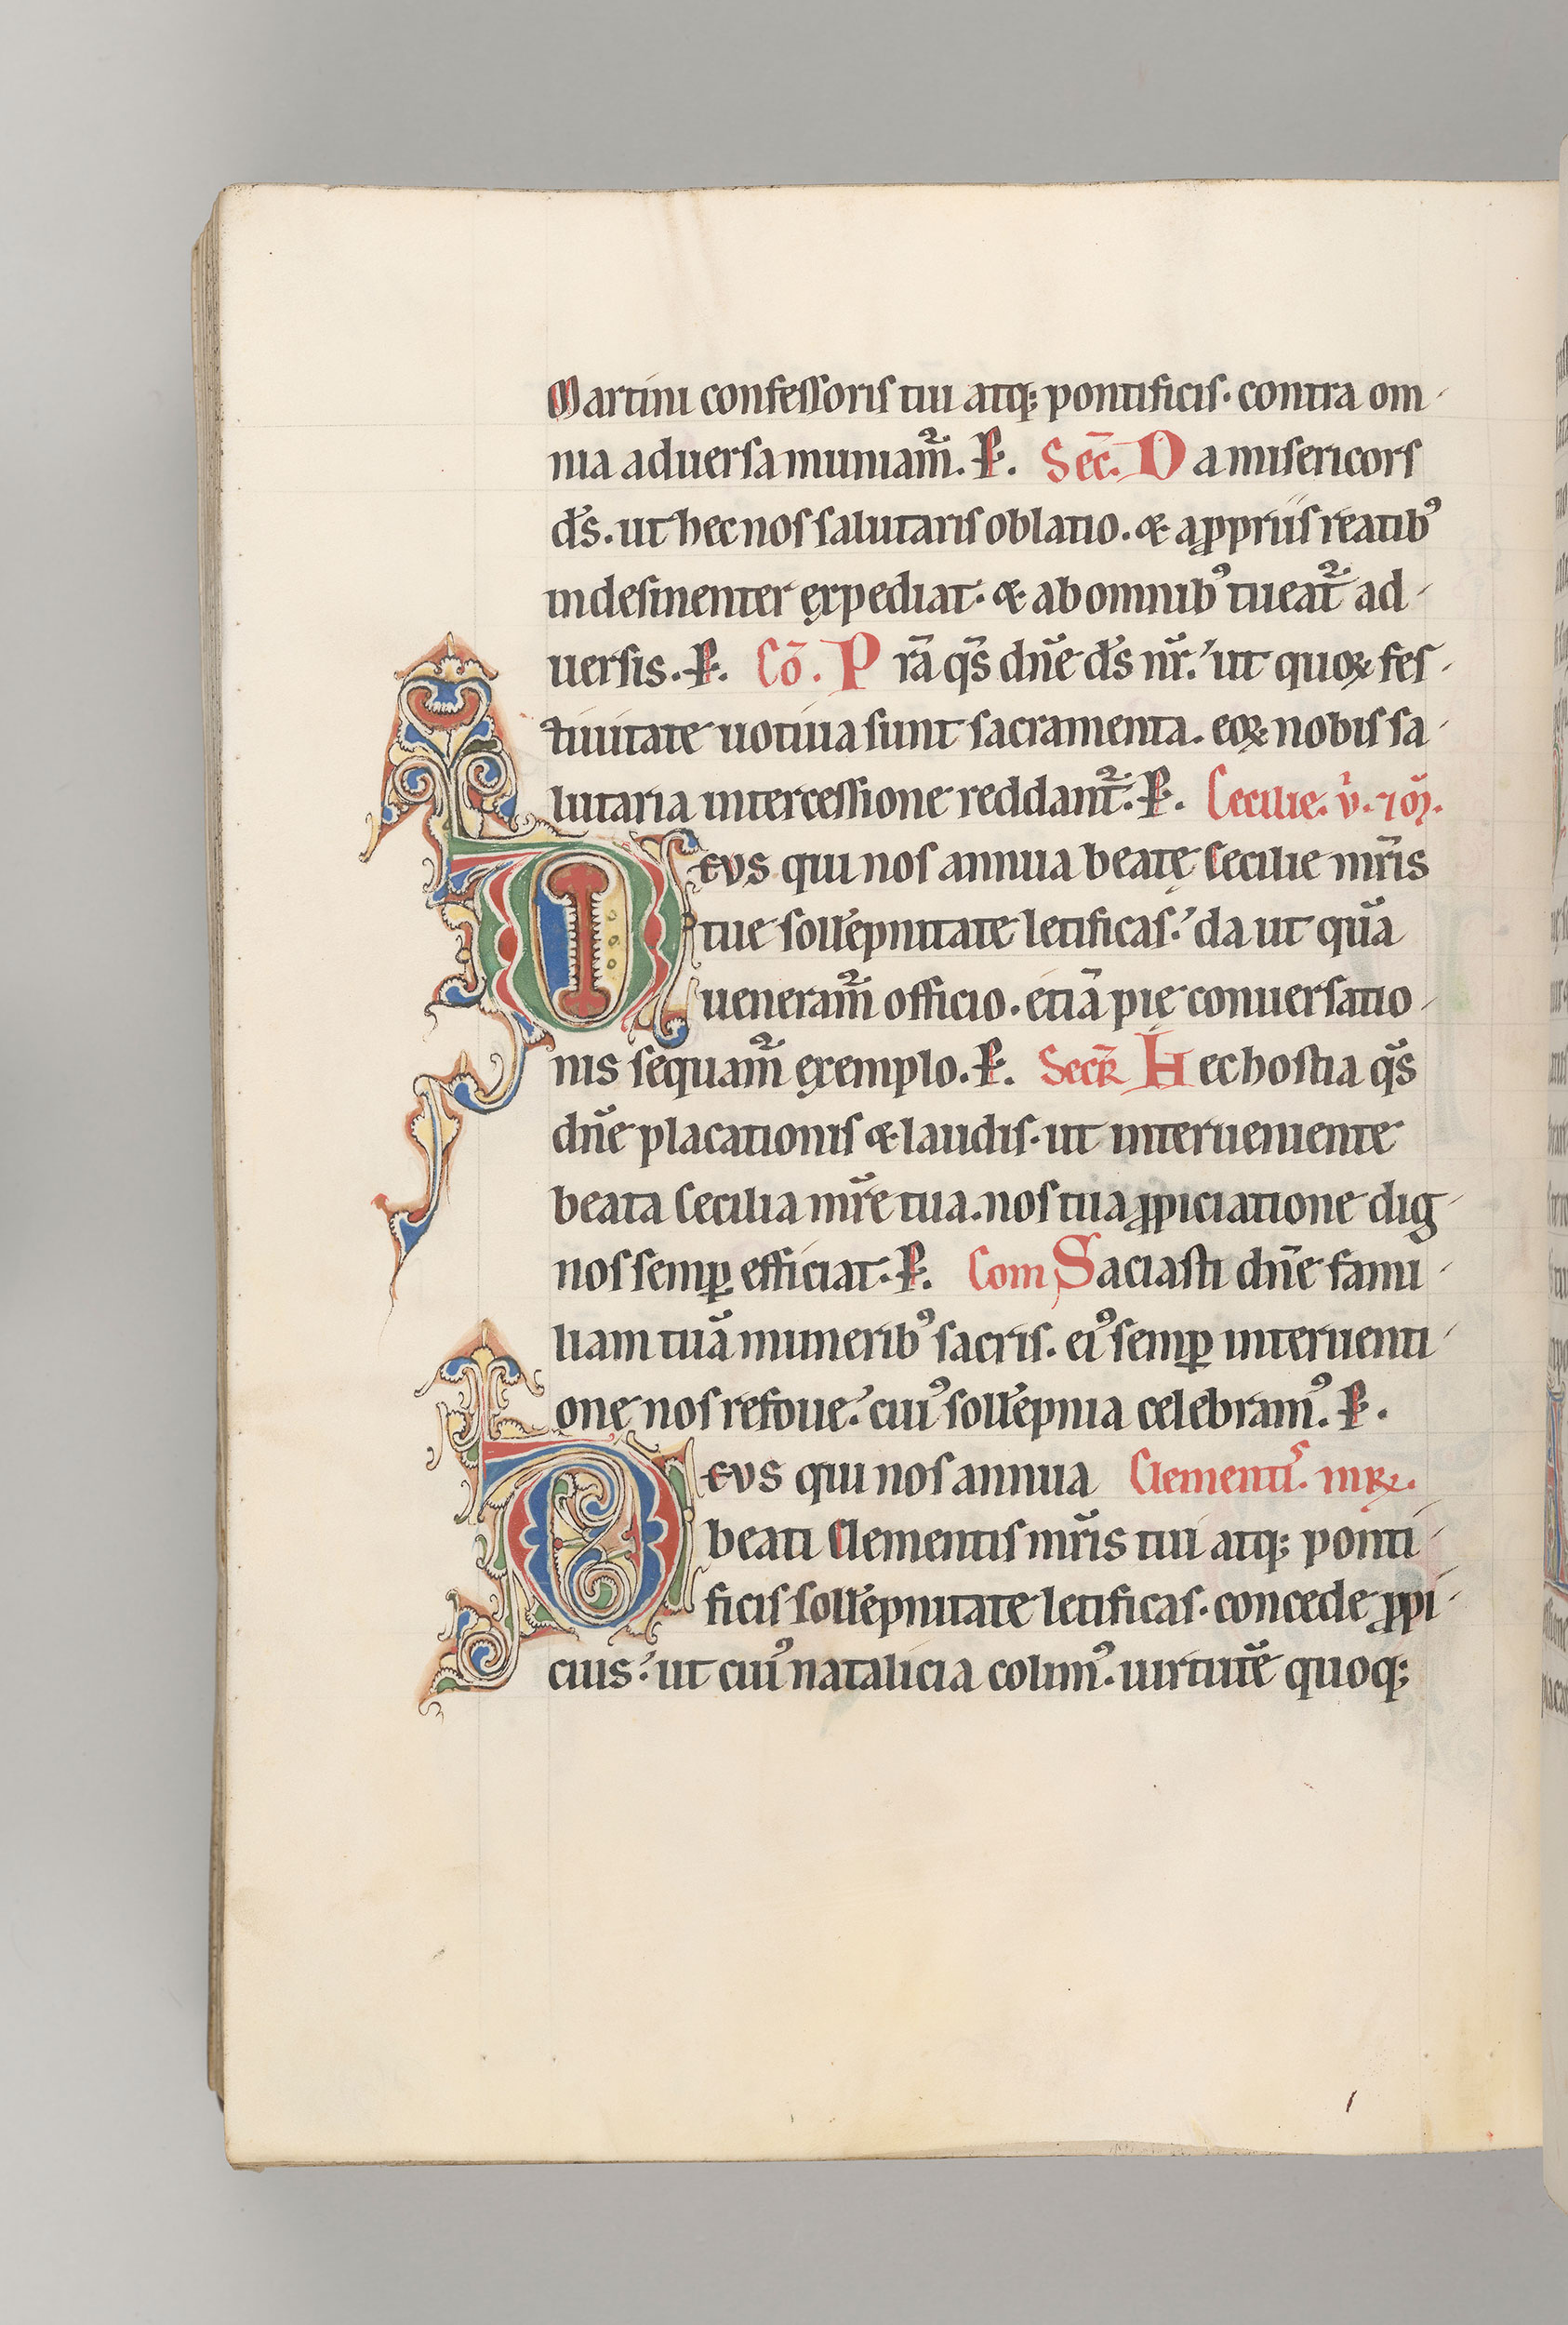 Martini confessoris tui atq; pontificis. contra om-
nia aduersa muniam̃. P. Sec̄. Da misericors
d̄s. ut hec nos salutaris oblatio. & a ꝓpriis reatibꝰ
indesinenter expediat. & ab omnibꝰ tueat̃ ad-
uersis. P. Cō. Prā qs̄ dn̄e d̄s nr̄. ut quoꝝ fes-
tiuitate uotiua sunt sacramenta. eoꝝ nobis sa-
lutaria intercessione reddant̃. P. Cecilie. v̄. ⁊ oꝝ.
DEVS qui nos annua beatę Cecilie mr̄is
tue soll̄epnitate letificas. da ut quā
ueneram̃ officio. etiā pię conuersatio-
nis sequam̃ exemplo. P. Secr̄ Hec hostia qs̄
dn̄e placationis & laudis. ut interueniente
beata Cecilia mr̄e tua. nos tua ꝓpiciatione dig-
nos semꝑ efficiat. P. Com Saciasti dn̄e fami-
liam tuā muneribꝰ sacris. eiꝰ semꝑ interuenti-
one nos refoue. cuiꝰ soll̄epnia celebramꝰ. P.
DEVS qui nos annua Clementis. mꝝ.
beati Clementis mr̄is tui atq; ponti-
ficis soll̄epnitate letificas. concede ꝓpi-
cius. ut cuiꝰ natalicia colimꝰ. uirtutē quoq;